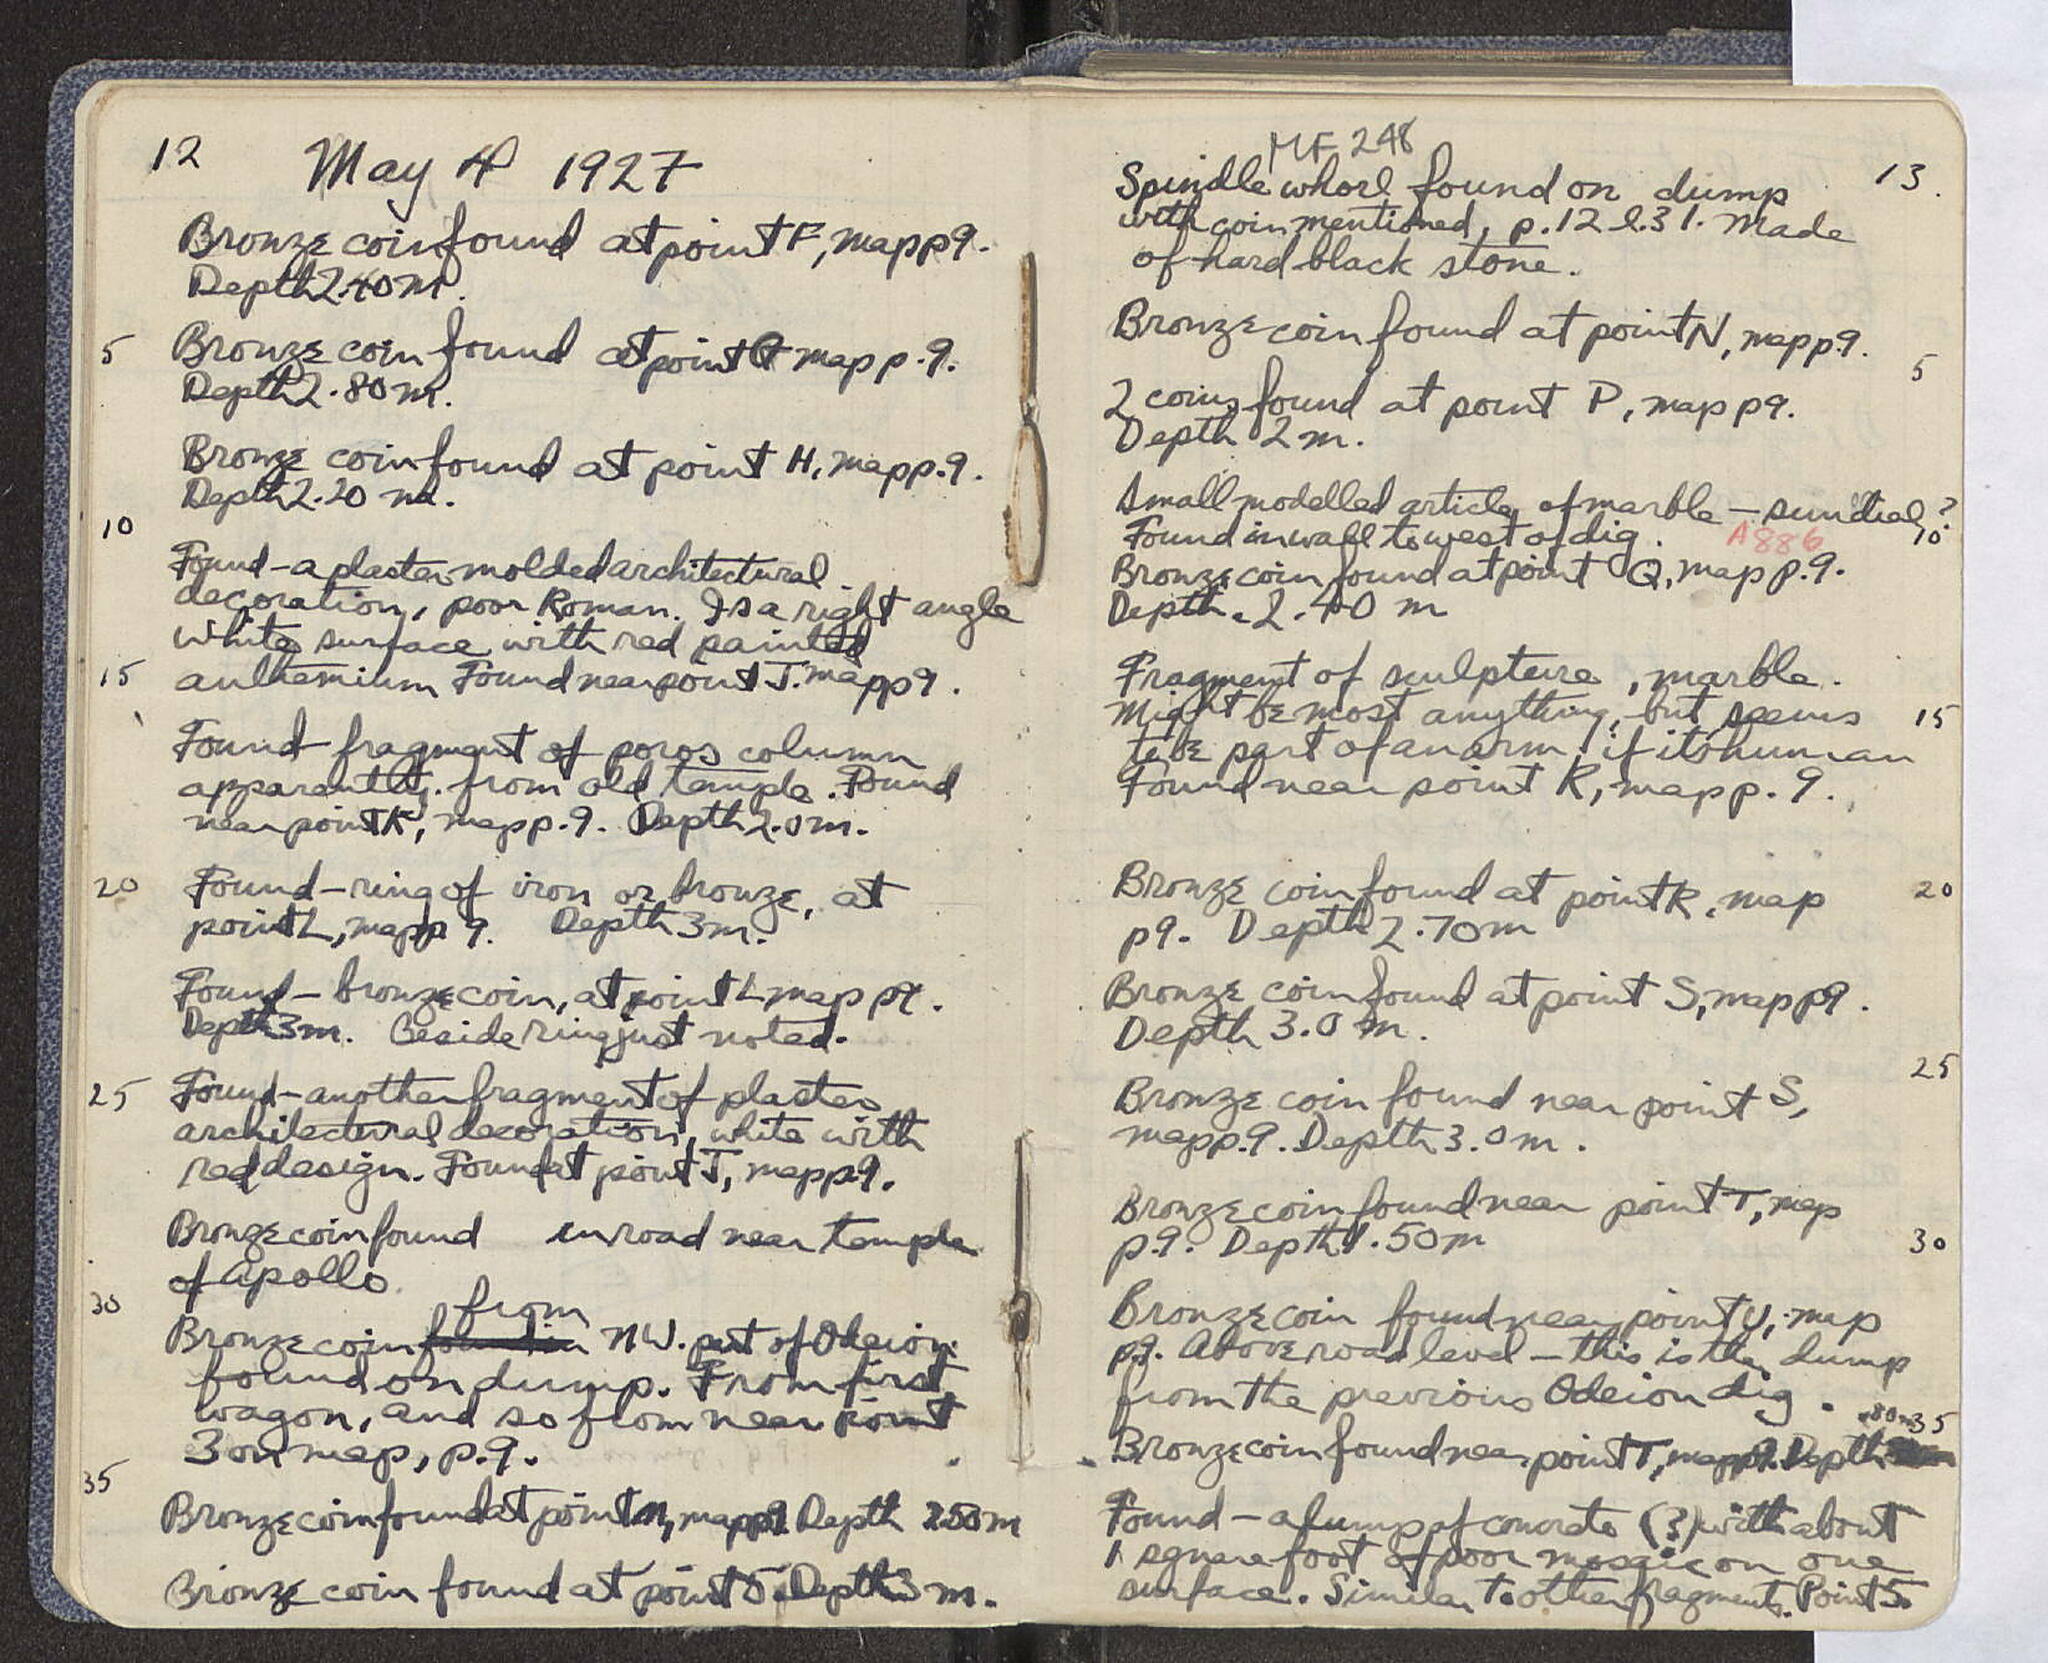 12 May 4 1927
Bronze coin found at point F, map p9.
Depth 2.40 m.
5 Bronze coin found at point G map p.9.
Depth 2.80 m.
Bronze coin found at point H, map p.9.
Depth 2.20 m.
10
Found - a plaster molded architectural
decoration, poor Roman. Is a right angle
white surface with red painted
15 anthemium Found near point J. map p9.
Found fragment of poros column
apparently from old temple. Found
near point K, map p.9. Depth 2.0 m.
20 Found - ring of iron or bronze, at
point L, map p 9. Depth 3 m.
Found - bronze coin, at point L map p9.
Depth 3m. Beside ring just noted.
25 Found - another fragment of plaster
architectural decoration, white with
red design. Found at point J, map p9.
Bronze coin found in road near temple
of Apollo
30 from
Bronze coin found in NW. part of Odeion
found on dump. From first
wagon, and so from near point
3 on map, p.9.
35
Bronze coin found at point M, map p9 Depth 2.50 m
Bronze coin found at point 5. Depth 3 m.
MF 248
13.
Spindle whorl found on dump
with coin mentioned, p.12 l.31. Made
of hard black stone.
Bronze coin found at point N, map p.9.
5
2 coins found at point P, map p9.
Depth 2 m.
Small modelled article of marble - sundial?
Found in wall to west of dig. A 886 10
Bronze coin found at point Q, map p.9.
Depth. 2.40 m
Fragment of sculpture, marble.
Might be most anything, but seems 15
to be part of an arm, if its human
Found near point R, map p. 9.
Bronze coin found at point R, map 20
p9. Depth 2.70 m
Bronze coin found at point S, map p9.
Depth 3.0 m.
25
Bronze coin found near point S,
map p.9. Depth 3.0 m.
Bronze coin found near point T, map
p.9. Depth 1.50 m 30
Bronze coin found near point U, map
p9. Above road level - this is the dump
from the previous Odeion dig.
.80m 35
Bronze coin found near point T, map p9. Depth
Found - a lump of concrete (?) with about
1 square foot of poor mosaic on one
surface. Similar to other fragments. Point 5.